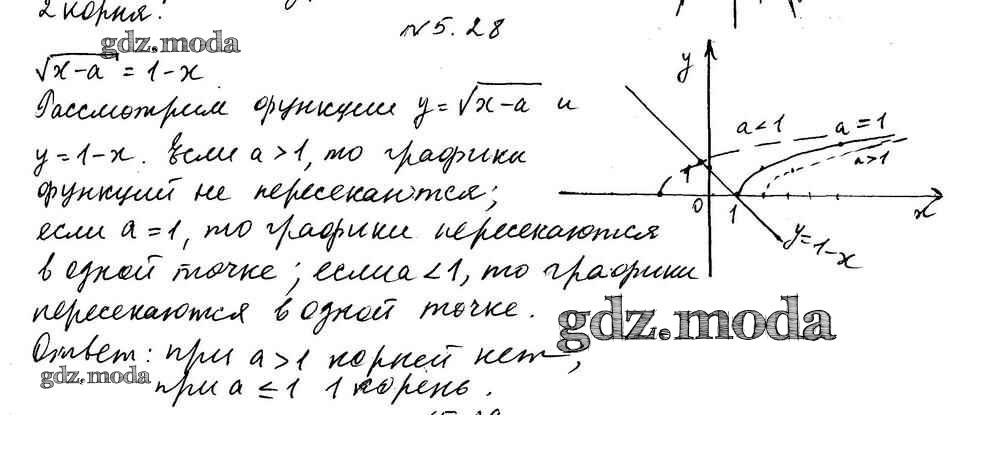 2 корня.
№5.28
gdz.moda
√x-a = 1-x
Рассмотрим функции y=√x-a и
y=1-x. Если a>1, то графики
функций не пересекаются;
если a=1, то графики пересекаются
в одной точке; если a<1, то графики
пересекаются в одной точке.
Ответ: при a>1 корней нет,
при a≤1 1 корень.
gdz.moda
gdz.moda
y
a<1
a=1
a>1
1
0
1
x
y=1-x